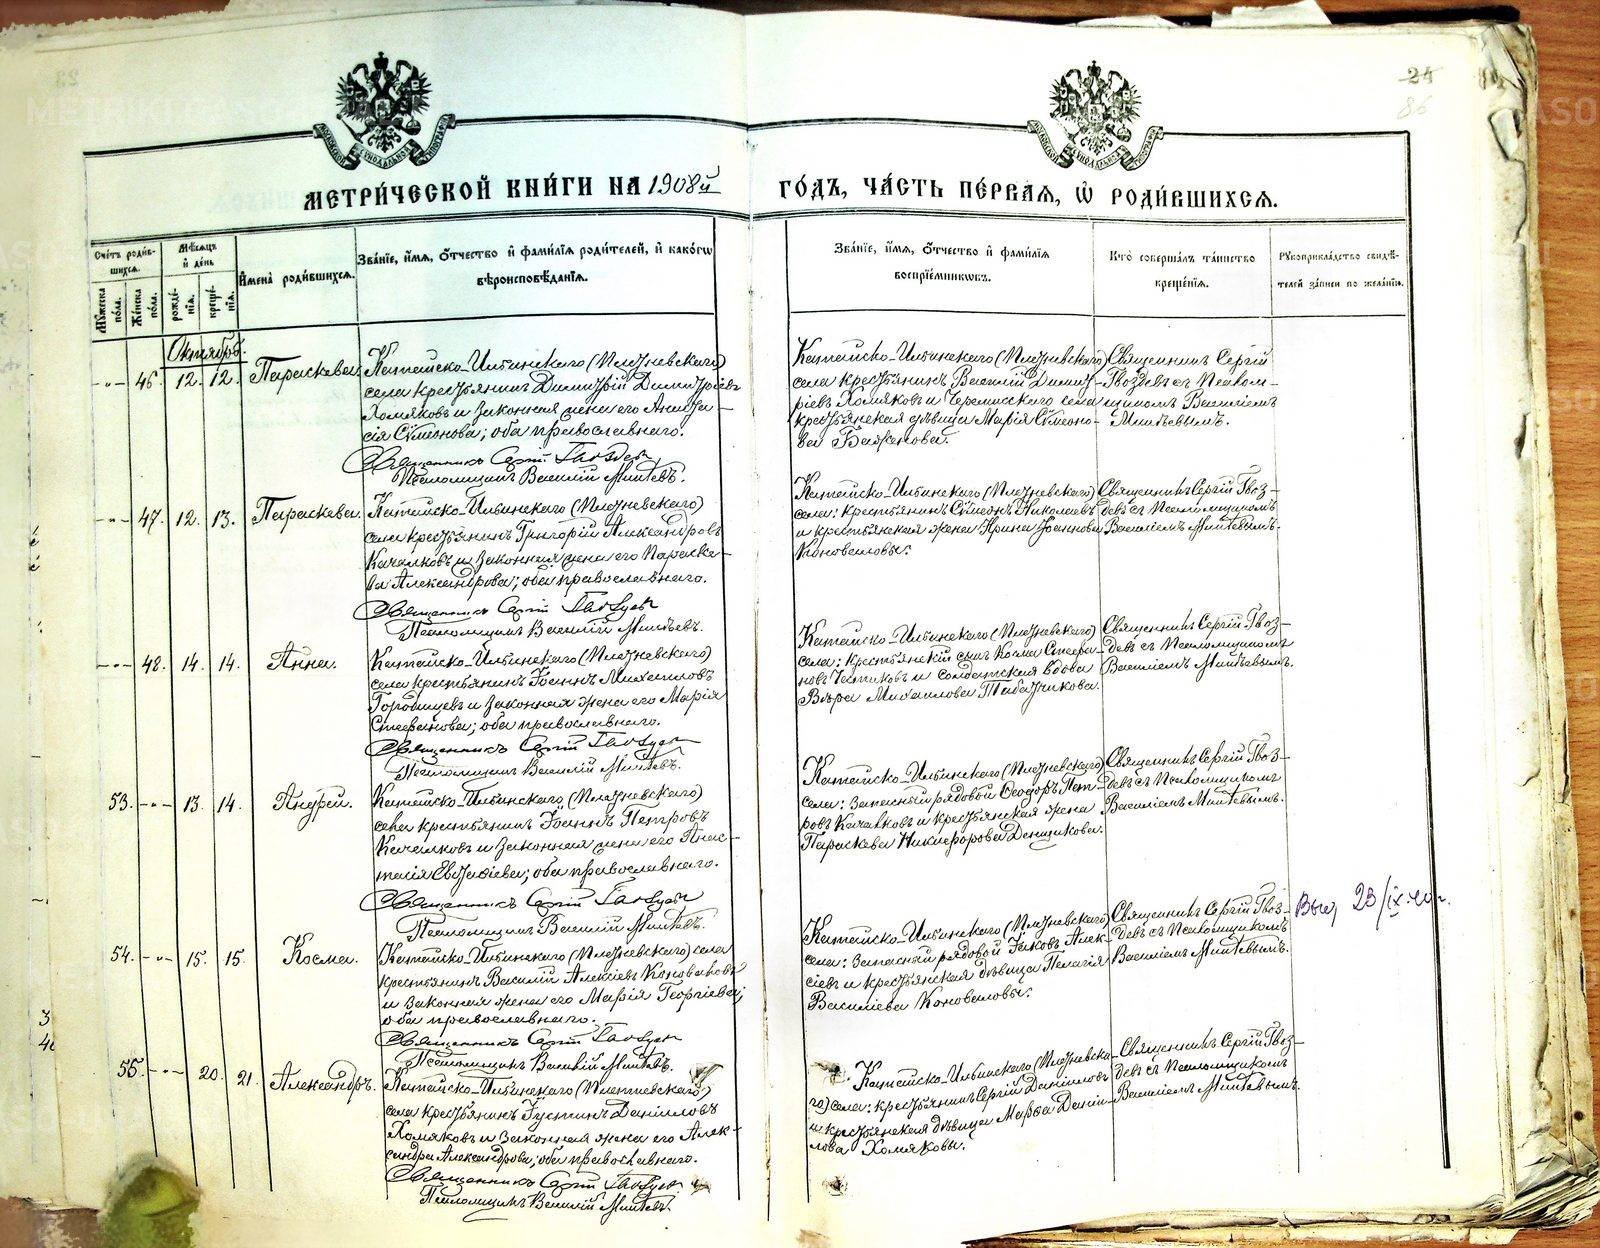 24
86
МЕТРИ́ЧЕСКОЙ КНИ́ГИ НА 1908й ГО́ДЪ, ЧА́СТЬ ПЕ́РВАЯ, Ѡ РОДИ́ВШИХСЯ.
Сче́тъ роди́вшихся.
Му́жеска по́ла.
Же́нска по́ла.
Мѣ́сяцъ и де́нь
рожде́нїя.
креще́нїя.
И́мена роди́вшихся.
Зва́нїе, и́мя, ѻ҆́тчество и фами́лїя роди́телей, и како́гѡ
вѣроисповѣ́данїя.
Зва́нїе, и́мя, ѻ҆́тчество и фами́лїя
воспрїе́мникѡвъ.
Кто̀ соверша́лъ та́инство
креще́нїя.
Рукоприкла́дство свидѣ́-
телей за́писи по жела́нїю.
Октябрь.
46. 12. 12. Параскева
Катайско-Ильинскаго (Плетневскаго)
села крестьянинъ Димитрій Димитріевъ
Хомяковъ и законная жена его Анаста-
сія Сѵмеонова; оба православнаго.
Священникъ Сергій Гвоздевъ
Псаломщикъ Василій Митѣевъ.
Катайско-Ильинскаго (Плетневскаго)
села крестьянинъ Василій Димит-
ріевъ Хомяковъ и Черемисскаго села
крестьянская дѣвица Марія Сѵмеоно-
ва Баженова.
Священникъ Сергій
Гвоздевъ съ Псалом-
щикомъ Василіемъ
Митѣевымъ.
47. 12. 13. Параскева.
Катайско-Ильинскаго (Плетневскаго)
села крестьянинъ Григорій Александровъ
Качалковъ и законная жена его Параске-
ва Александрова; оба православнаго.
Священникъ Сергій Гвоздевъ
Псаломщикъ Василій Митѣевъ.
Катайско-Ильинскаго (Плетневскаго)
села: крестьянинъ Сѵмеонъ Николаевъ
и крестьянская жена Ирина Іоаннова
Коноваловы.
Священникъ Сергій Гвоз-
девъ съ Псаломщикомъ
Василіемъ Митѣевымъ.
48. 14. 14. Анна.
Катайско-Ильинскаго (Плетневскаго)
села крестьянинъ Іоаннъ Михаиловъ
Городищевъ и законная жена его Марія
Стефанова; оба православнаго.
Священникъ Сергій Гвоздевъ
Псаломщикъ Василій Митѣевъ.
Катайско-Ильинскаго (Плетневскаго)
села: крестьянскій сынъ Косма Стефа-
новъ и солдатская вдова
Вѣра Михаилова Табатчикова.
Священникъ Сергій Гвоз-
девъ съ Псаломщикомъ
Василіемъ Митѣевымъ.
53. 13. 14. Андрей.
Катайско-Ильинскаго (Плетневскаго)
села крестьянинъ Іоаннъ Петровъ
Качалковъ и законная жена его Анас-
тасія Евтихіева; оба православнаго.
Священникъ Сергій Гвоздевъ
Псаломщикъ Василій Митѣевъ.
Катайско-Ильинскаго (Плетневскаго)
села: Запасный рядовой Ѳеодоръ Пет-
ровъ Качалковъ и крестьянская жена
Параскева Никифорова Денщикова.
Священникъ Сергій Гвоз-
девъ съ Псаломщикомъ
Василіемъ Митѣевымъ.
54. 15. 15. Косма.
Катайско-Ильинскаго (Плетневскаго) села
крестьянинъ Василій Алексіевъ Коноваловъ
и законная жена его Марія Георгіева;
оба православнаго.
Священникъ Сергій Гвоздевъ
Псаломщикъ Василій Митѣевъ.
Катайско-Ильинскаго (Плетневскаго)
села: Запасный рядовой Іаковъ Алек-
сіевъ и крестьянская дѣвица Пелагія
Василіева Коноваловы.
Священникъ Сергій Гвоз-
девъ съ Псаломщикомъ
Василіемъ Митѣевымъ.
23/IX
55. 20. 21. Александръ.
Катайско-Ильинскаго (Плетневскаго)
села крестьянинъ Іустинъ Даніиловъ
Хомяковъ и законная жена его Алек-
сандра Александрова; оба православнаго.
Священникъ Сергій Гвоздевъ
Псаломщикъ Василій Митѣевъ.
Катайско-Ильинскаго (Плетневска-
го) села: крестьянинъ Сергій Даніиловъ
и крестьянская дѣвица Марѳа Даніи-
лова Хомяковы.
Священникъ Сергій Гвоз-
девъ съ Псаломщикомъ
Василіемъ Митѣевымъ.